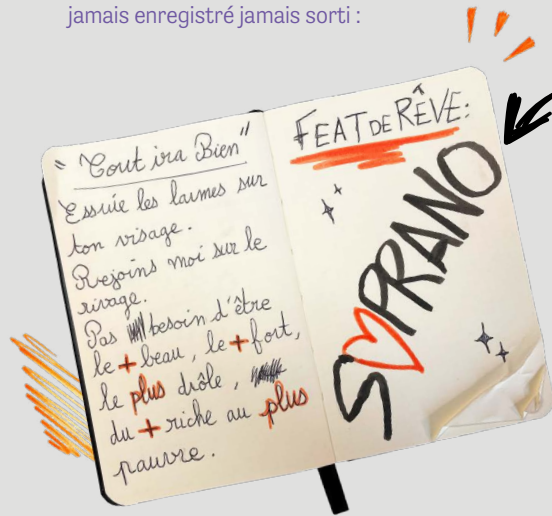 jamais enregistré jamais sorti :
" Tout ira Bien "
Essuie les larmes sur
ton visage.
Rejoins moi sur le
rivage.
Pas besoin d'être
le + beau, le + fort,
le plus drôle,
du + riche au plus
pauvre.
FEAT DE RÊVE:
SOPRANO